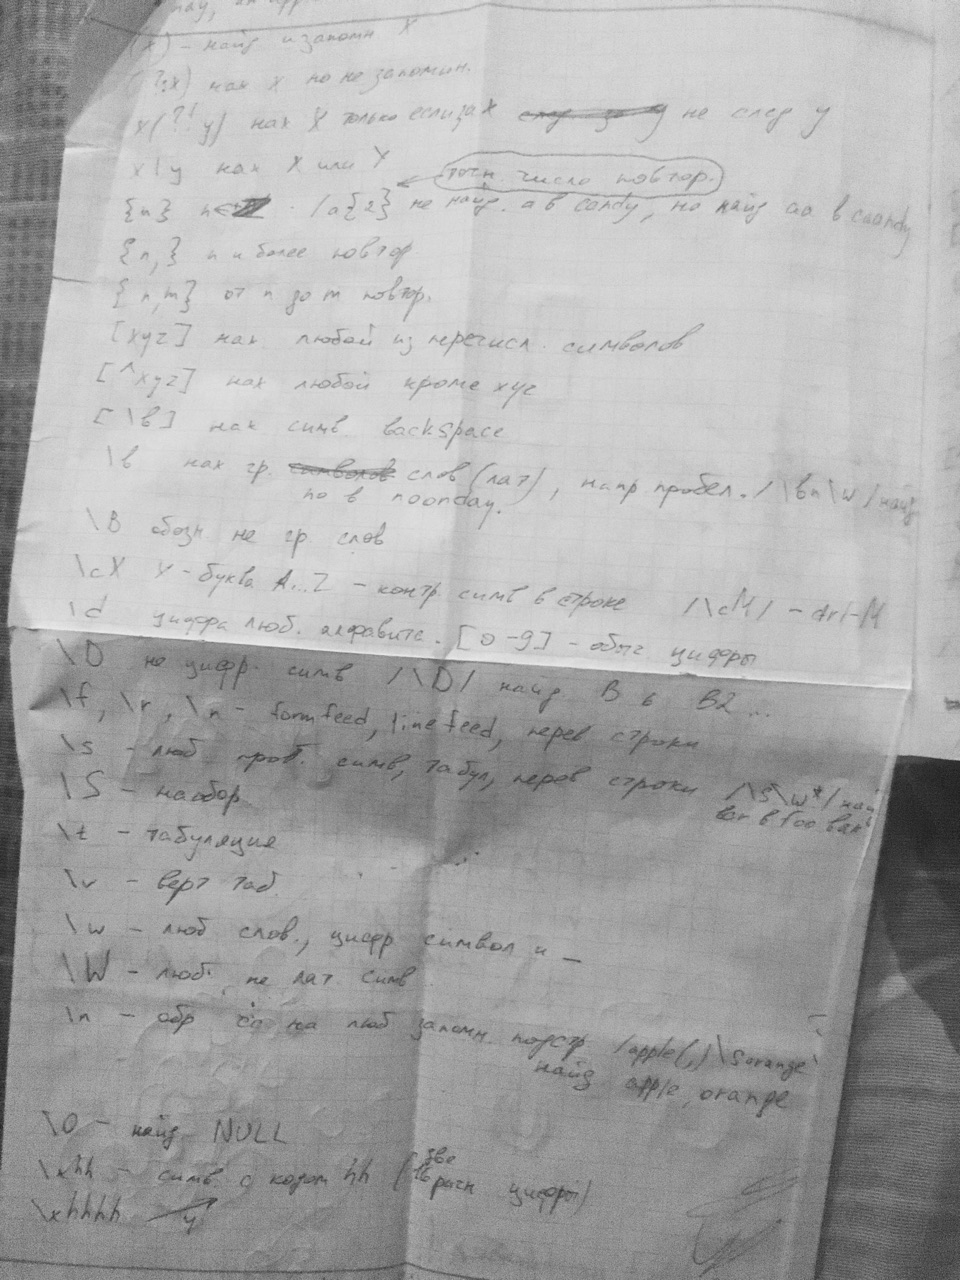 (x) - найд и запомн X
(?:x) нах X но не запомин.
x(?!y) нах X только если за X не след y
x|y нах X или Y
точн число повтор.
{n} /a{2} не найд. a в candy, но найд aa в caandy
{n,} n и более повтор
{n,m} от n до m повтор.
[xyz] нах любой из перечисл. символов
[^xyz] нах любой кроме xyz
[\b] нах симв. backspace
\b нах гр. слов (лат), напр пробел. /\bn\w/ найд
no в noonday.
\B обозн не гр слов
\cX X - буква A...Z - контр. симв в строке /\cM/ - ctrl-M
\d цифра люб. алфавита. [0-9] - обыч цифры
\D не цифр. симв /\D/ найд B в B2...
\f, \r, \n - formfeed, linefeed, перев строки
\s - люб проб. симв, табул, перев строки /\s\w*/ най
bar в foo bar
\S - наобор
\t - табуляция
\v - верт таб.
\w - люб слов., цифр символ и _
\W - люб. не лат. симв
\n - обр на люб запомн. подстр /apple(,)\sorange\
найд apple, orange
\0 - найд NULL
\xhh - симв с кодом hh (две 16 ричн цифры)
\xhhhh 4